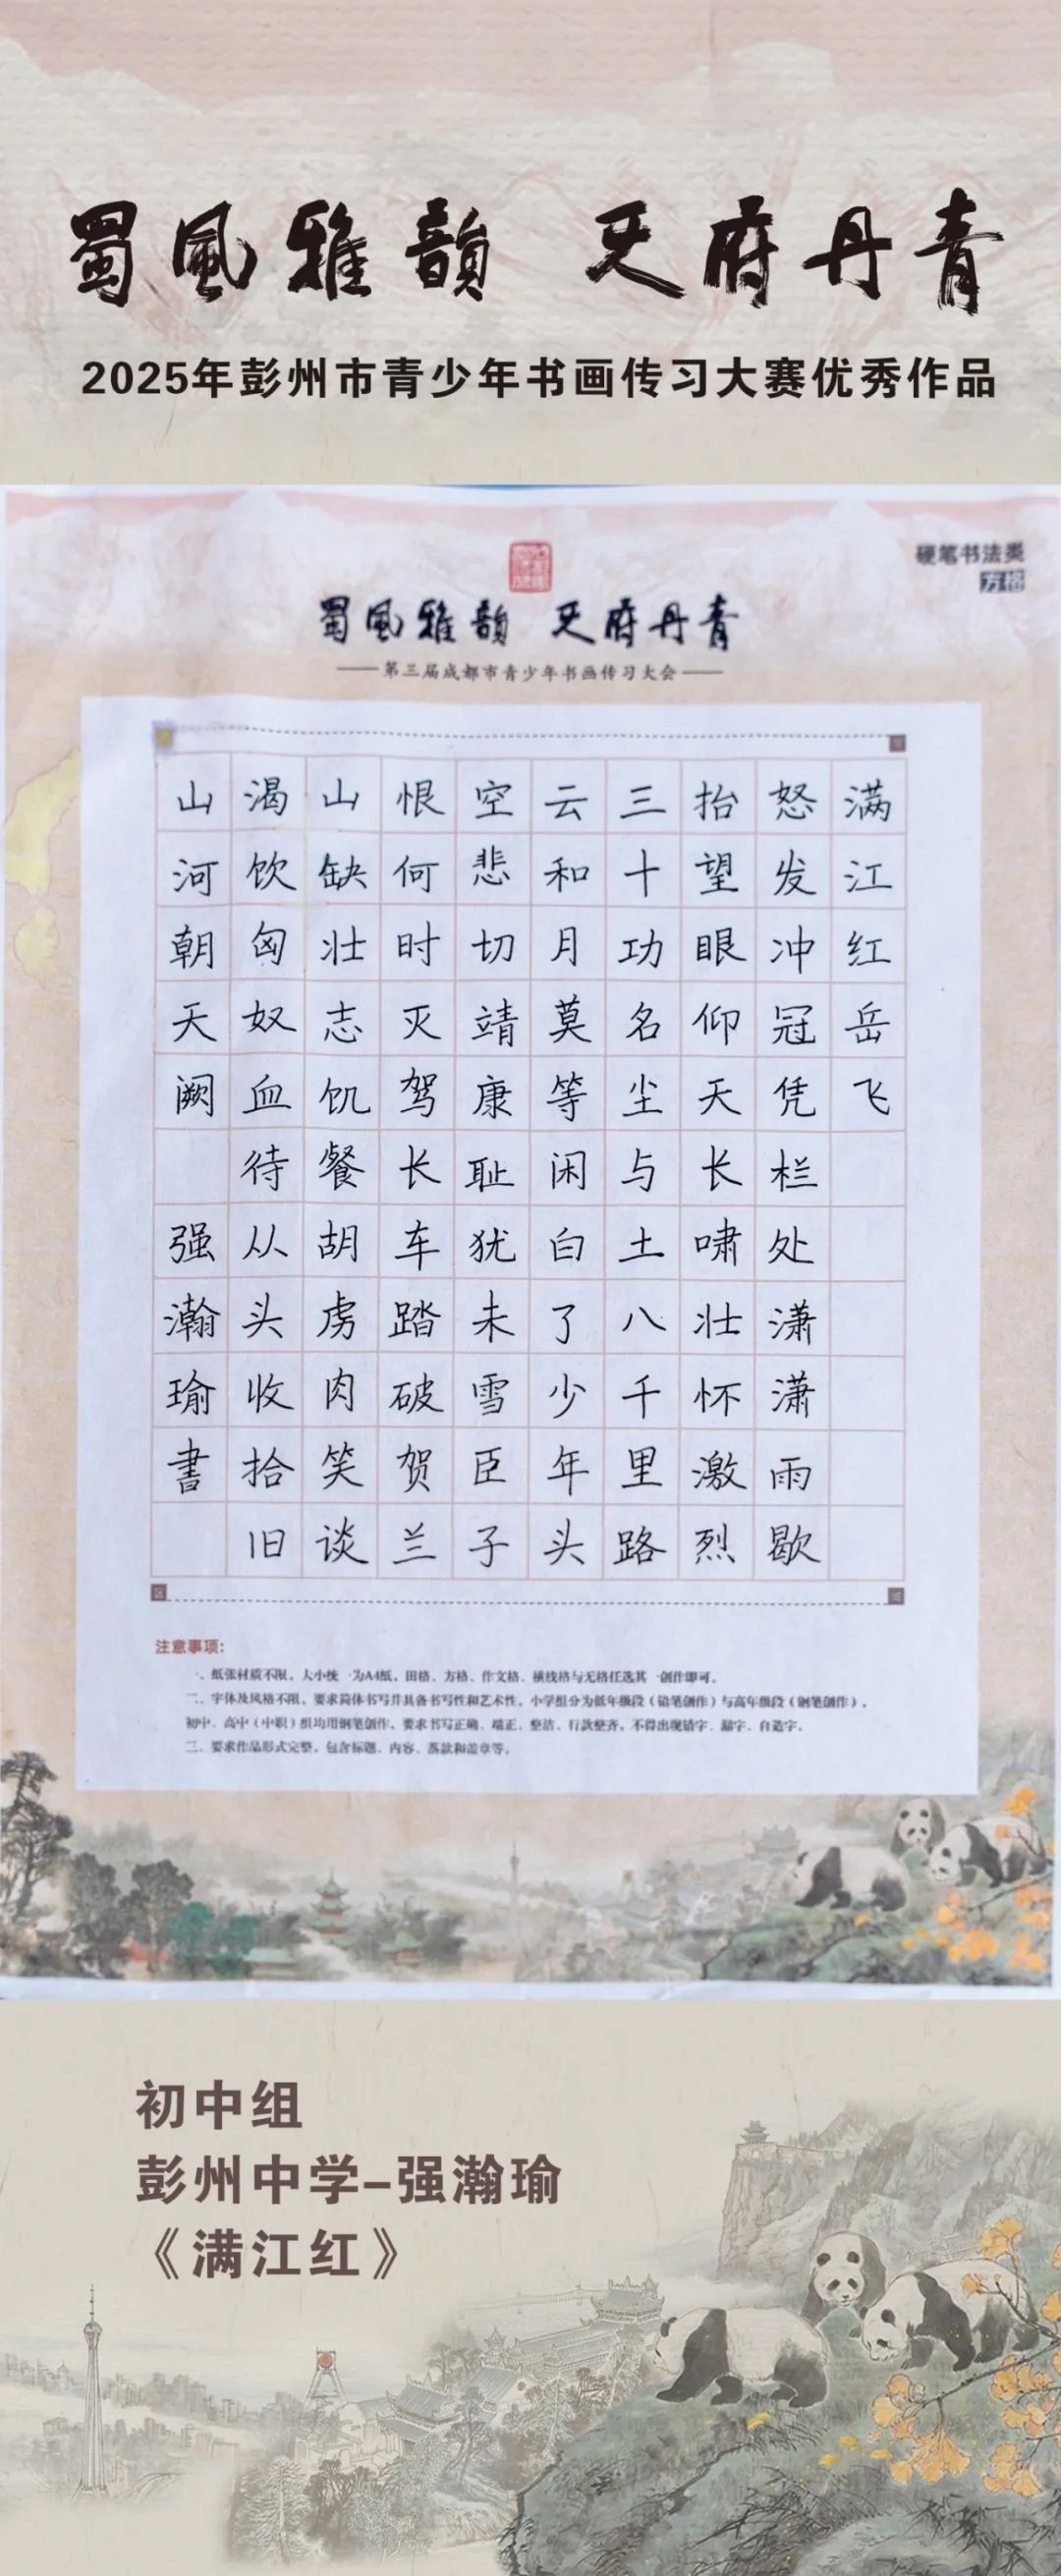 蜀風雅韻 天府丹青
2025年彭州市青少年书画传习大赛优秀作品
硬笔书法类
方格
蜀風雅韻 天府丹青
第三届成都市青少年书画传习大会
满江红岳飞
怒发冲冠凭栏处潇潇雨歇
抬望眼仰天长啸壮怀激烈
三十功名尘与土八千里路
云和月莫等闲白了少年头
空悲切靖康耻犹未雪臣子
恨何时灭驾长车踏破贺兰
山缺壮志饥餐胡虏肉笑谈
渴饮匈奴血待从头收拾旧
山河朝天阙 强瀚瑜書
注意事项:
一、纸张材质不限，大小统一为A4纸，田格、方格、作文格、横线格与无格任选其一创作即可。
二、字体及风格不限，要求简体书写并具备书写性和艺术性，小学组分为低年级段（铅笔创作）与高年级段（钢笔创作），
初中、高中（中职）组均用钢笔创作，要求书写正确、端正、整洁、行款整齐，不得出现错字、漏字、自造字。
三、要求作品形式完整，包含标题、内容、落款和盖章等。
初中组
彭州中学-强瀚瑜
《满江红》